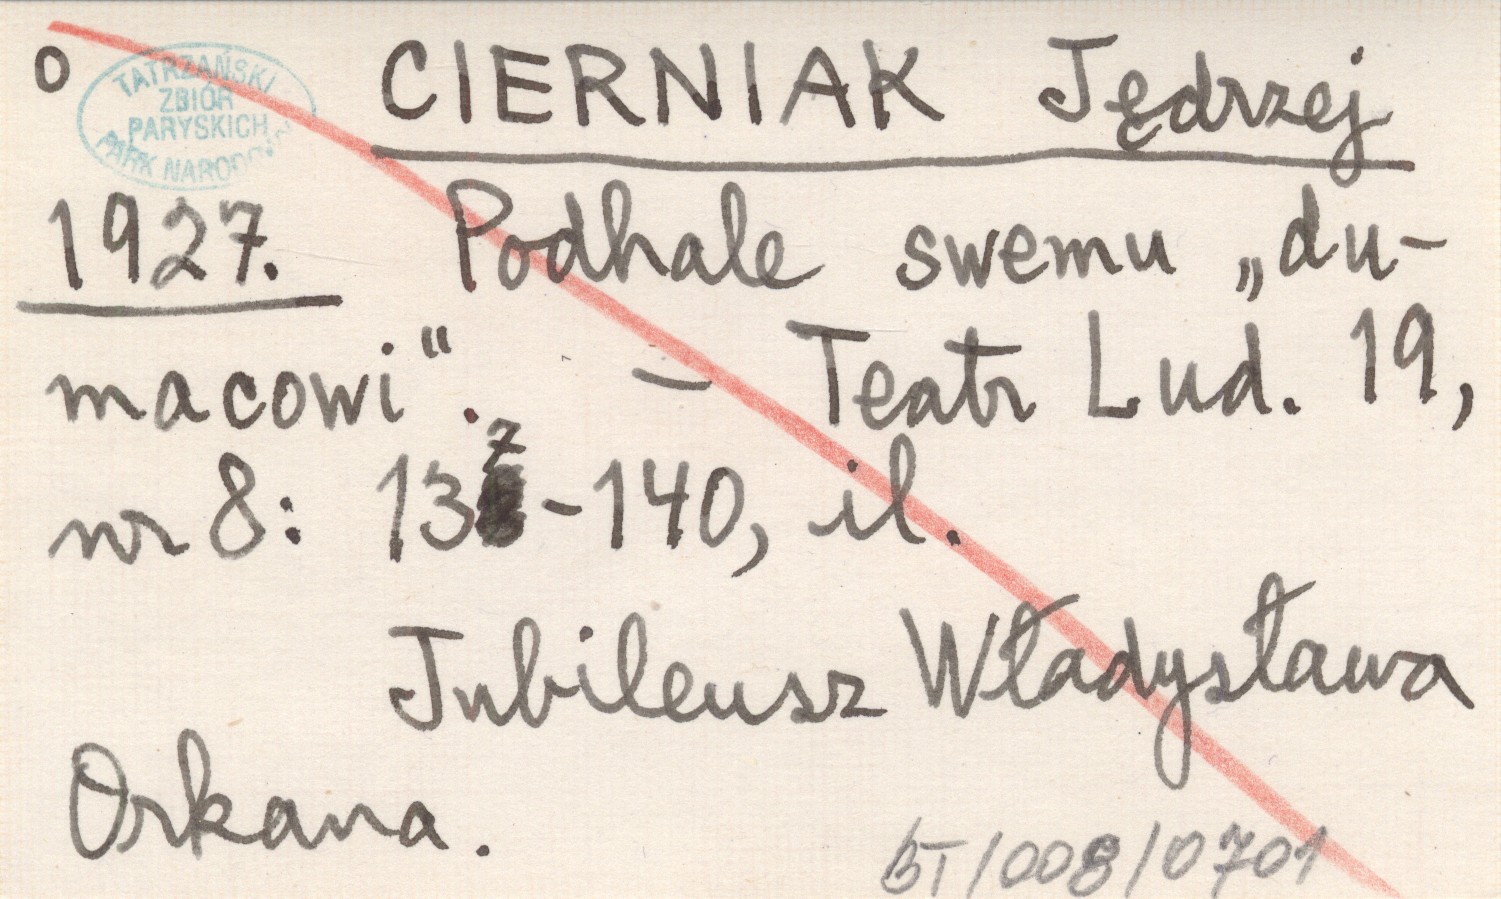 o CIERNIAK Jędrzej
TATRZAŃSKI
ZBIÓR
PARYSKICH
PARK
1927. Podhale swemu „du-
macowi“. – Teatr Lud. 19,
nr 8: 137-140, il.
Jubileusz Władysława
Orkana.
BT/008/0701